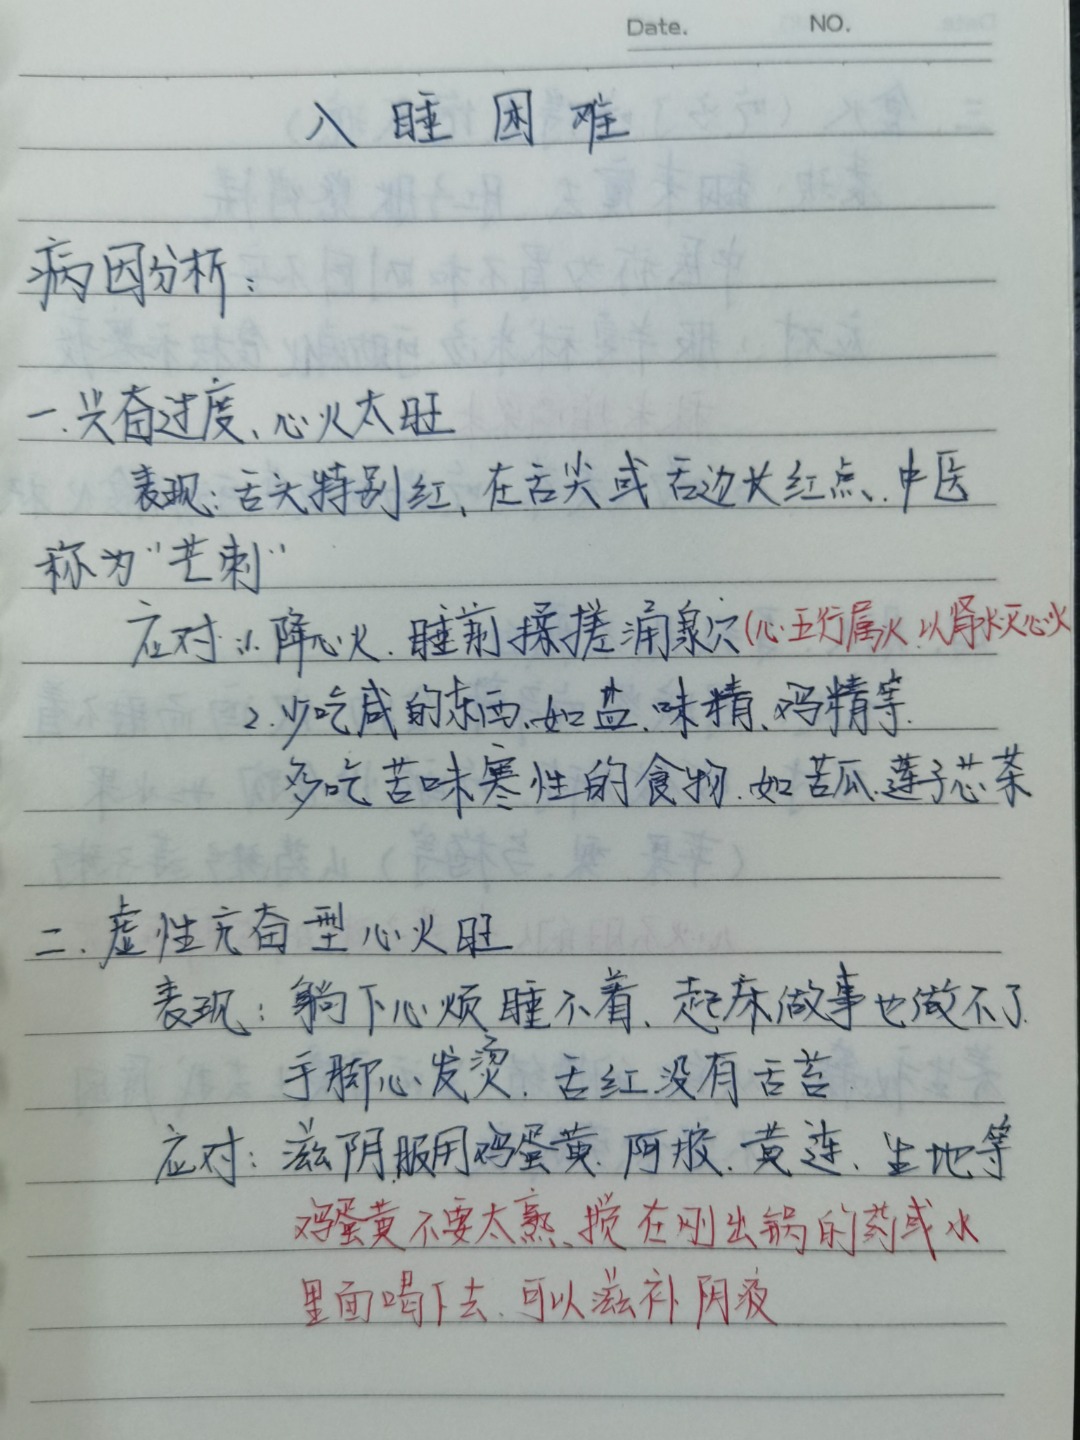 Date. NO.
入睡困难
病因分析：
一.兴奋过度、心火太旺
表现：舌头特别红，在舌尖或舌边长红点、中医
称为"芒刺"
应对：1.降心火.睡前揉搓涌泉穴(心五行属火.以肾水灭心火
2.少吃咸的东西.如盐、味精、鸡精等.
多吃苦味寒性的食物.如苦瓜.莲子芯茶
二.虚性亢奋型心火旺
表现：躺下心烦睡不着、起床做事也做不了.
手脚心发烫.舌红.没有舌苔.
应对：滋阴.服用鸡蛋黄.阿胶.黄连、生地等
鸡蛋黄不要太熟、搅在刚出锅的药或水
里面喝下去.可以滋补阴液